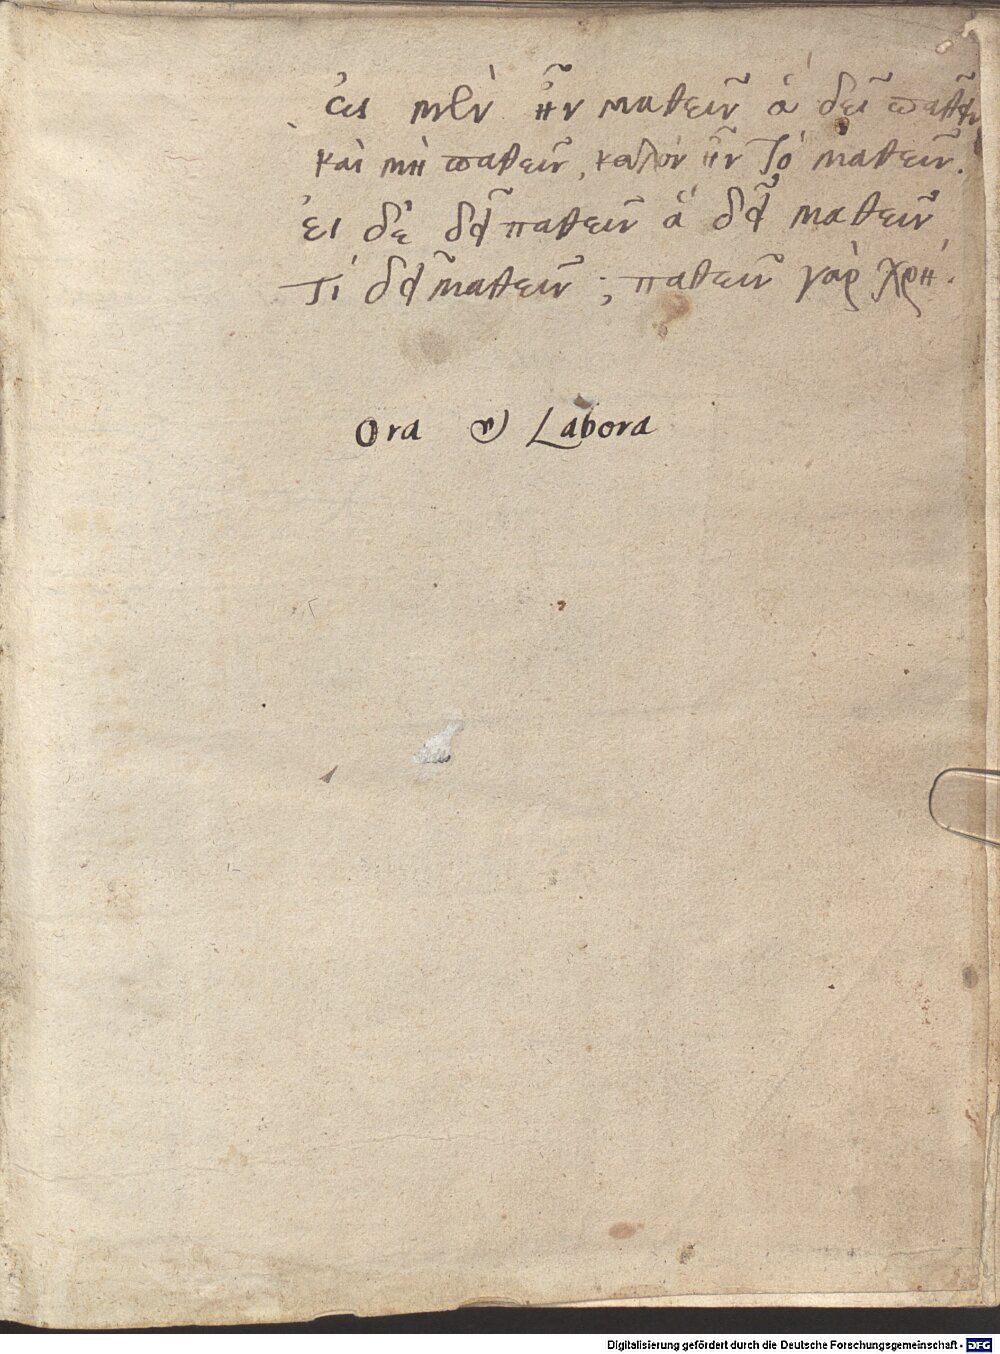 εἰ μὲν ἦν μαθεῖν ἁ δεῖ παθεῖν
καὶ μὴ παθεῖν, καλὸν ἦν τὸ μαθεῖν.
εἰ δὲ δεῖ παθεῖν ἁ δεῖ μαθεῖν
τί δεῖ μαθεῖν ; παθεῖν γὰρ χρή.
Ora et Labora
Digitalisierung gefördert durch die Deutsche Forschungsgemeinschaft - DFG